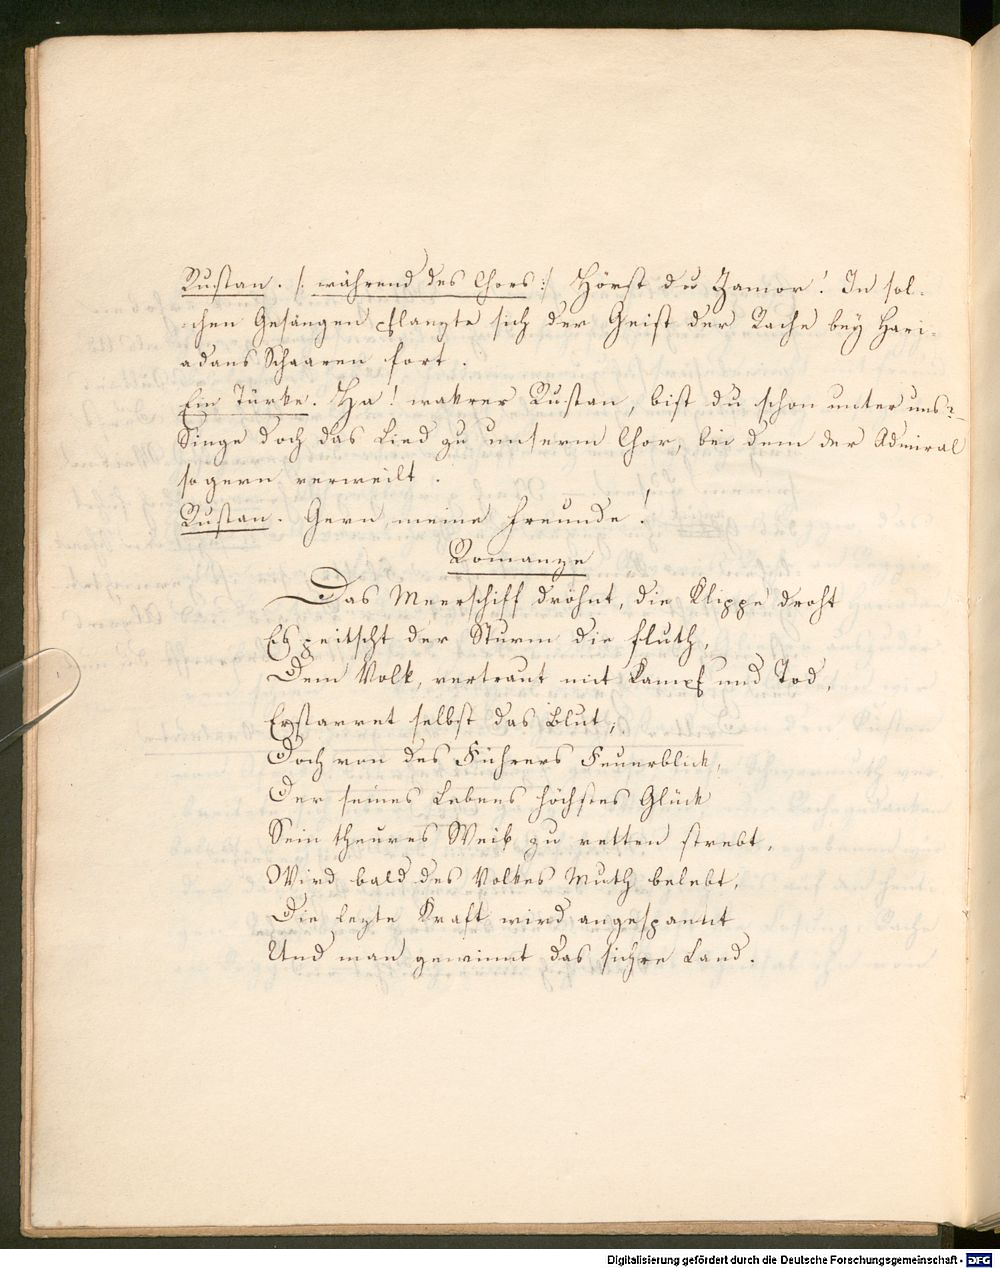 Rustan. /: während des Chors :/ Hörst du Zamor! In sol-
chen Gesängen pflanzte sich der Geist der Rache bey Hari-
adans Schaaren fort.
Ein Türke. Ha! wakrer Rustan, bist du schon unter uns?
Singe doch das Lied zu unserm Chor, bei dem der Admiral
so gern verweilt.
Rustan. Gern, meine Freunde!
Romanze
Das Meerschiff dröhnt, die Klippe droht
Es peitscht der Sturm die Fluth,
Dem Volk, vertraut mit Kampf und Tod,
Erstarret selbst das Blut;
Doch von des Führers Feuerblick,
Der seines Lebens höchstes Glück
Sein theures Weib zu retten strebt,
Wird bald des Volkes Muth belebt,
Die lezte Kraft wird angespannt
Und man gewinnt das sichre Land.
Digitalisierung gefördert durch die Deutsche Forschungsgemeinschaft - DFG